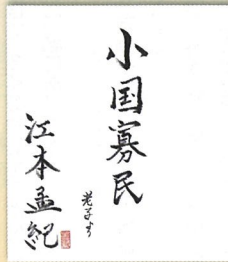 小国寡民
老子より
江本孟紀